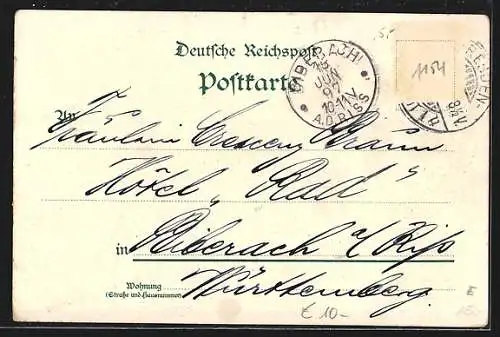 Deutsche Reichspost
Postkarte
BIBERACH
JUN
97
10-11V
A.D. RISS
1154
An
Fräulein Crescenz Braun
Hôtel „Rad"
in Biberach a/Riß
Wohnung
(Straße und Hausnummer)
Württemberg.
€ 10-